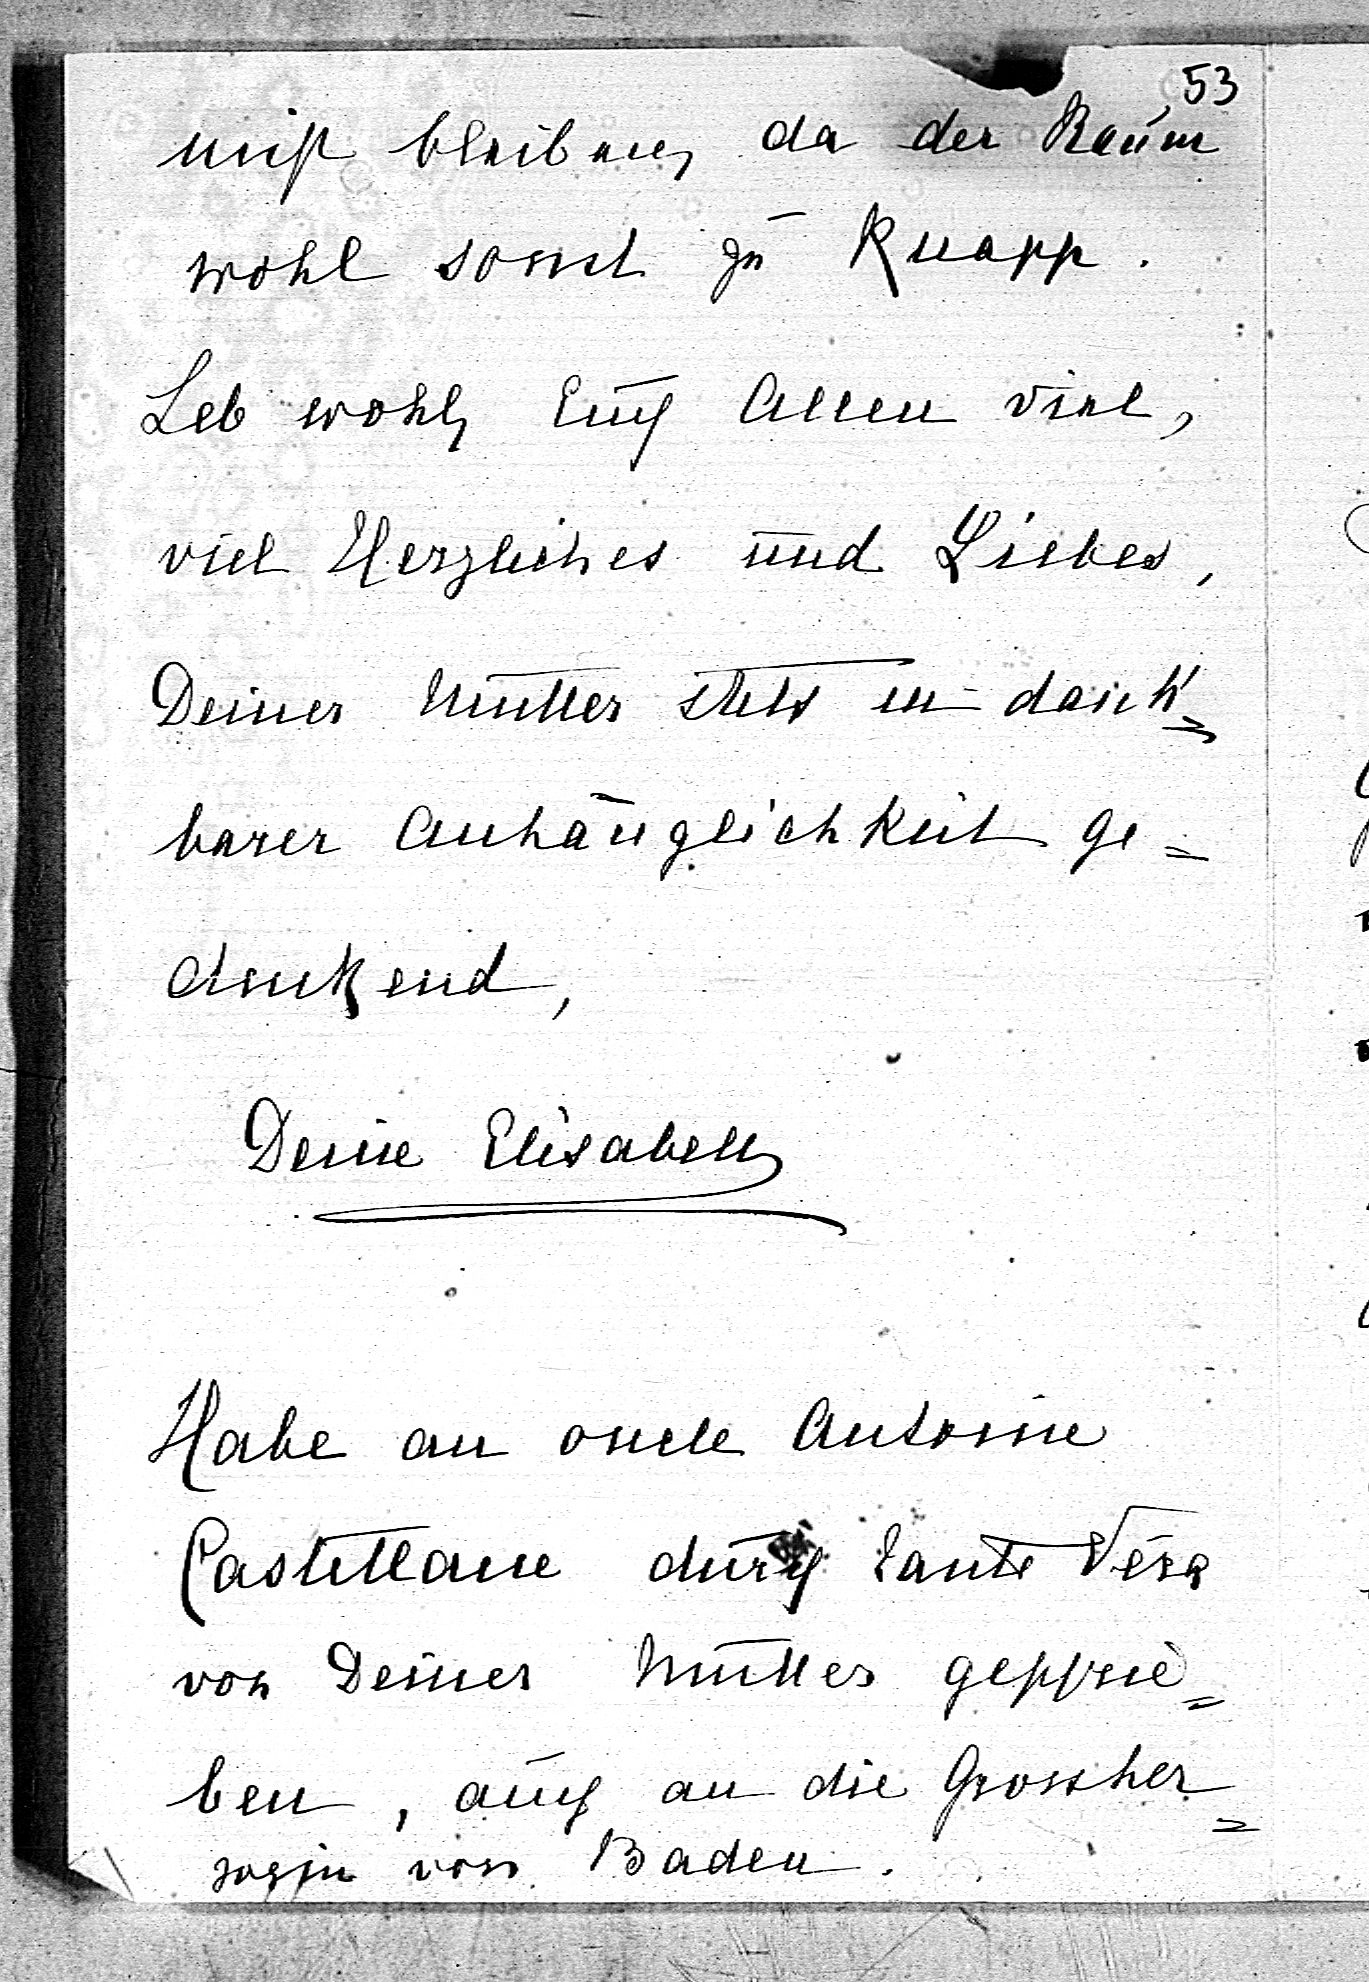 53
nicht bleiben, da der Raum
wohl sonst zu Knapp.
Leb wohl, Euch Allen viel,
viel Herzliches und Liebes,
Deiner Mutter stets in dank=
barer Anhänglichkeit ge=
denkend,
Deine Elisabeth
Habe an oncle Antoine
Castellane durch Tante Véra
von Deiner Mutter geschrie=
ben, auch an die Grossher=
zogin von Baden.